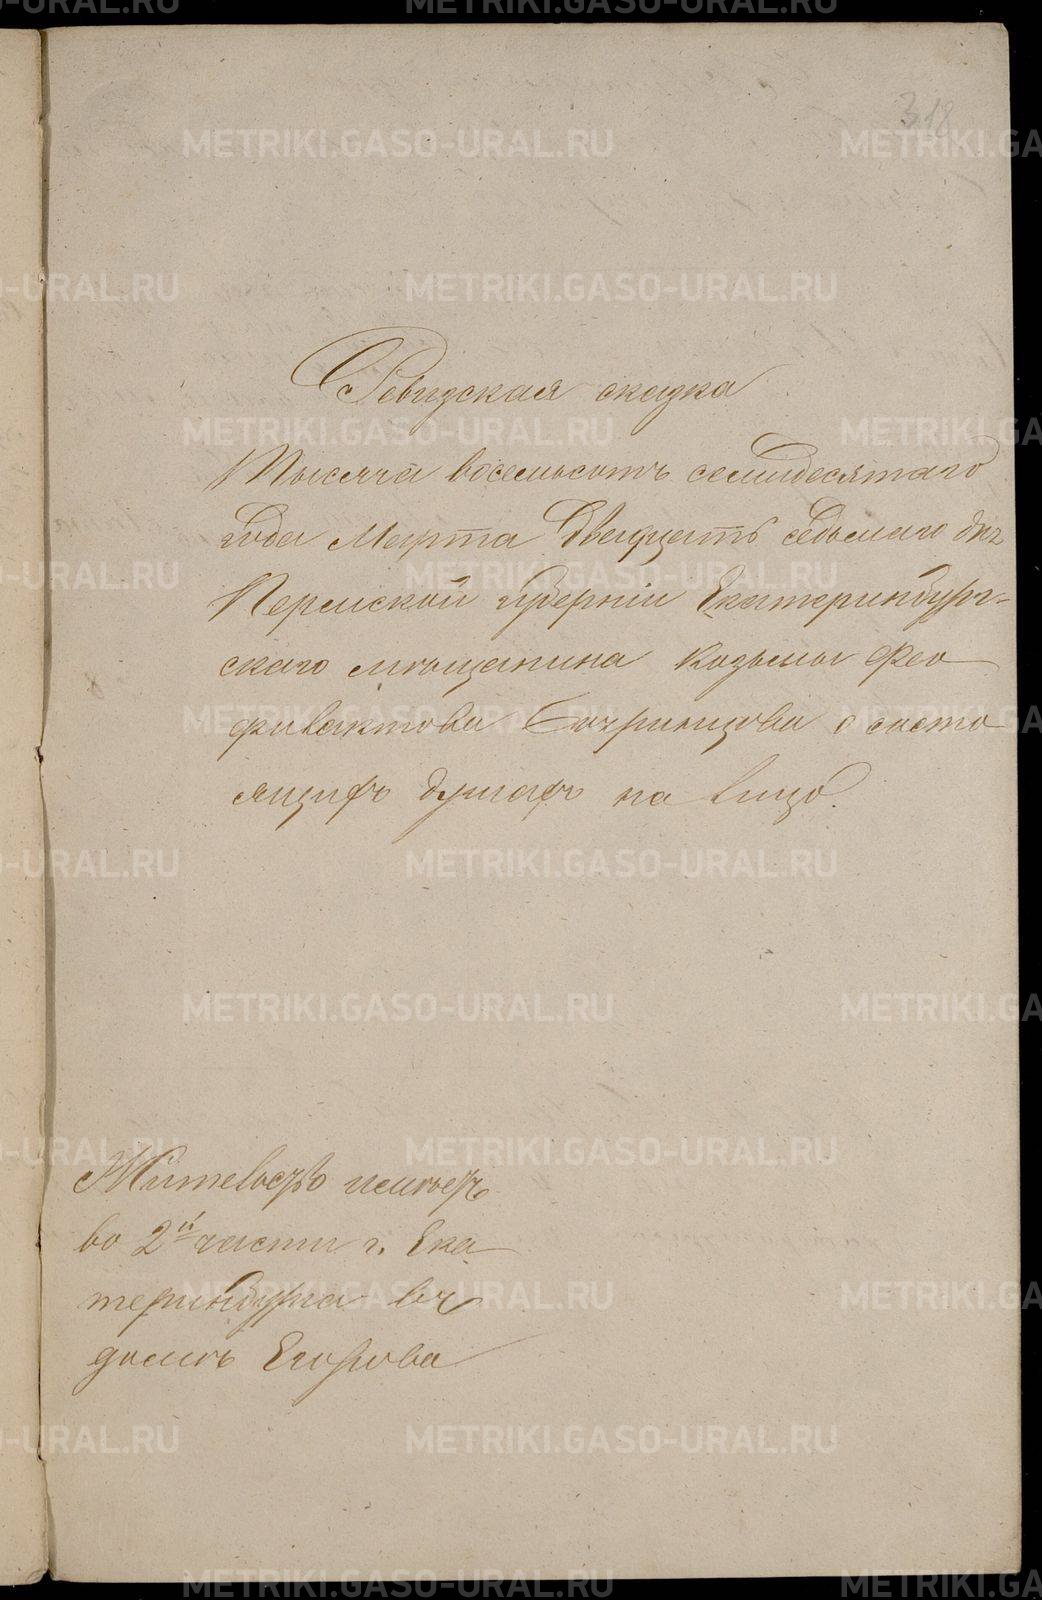 318
Ревизская сказка
Тысяча восемьсотъ семидесятаго
года Марта Двадцать седьмаго дня
Пермской губерніи Екатеринбург-
скаго мѣщанина Козьмы Фео
филактова о состо
ящихъ душахъ на лицо.
Жительство имѣетъ
во 2й части г. Ека
теринбурга въ
домѣ Егорова
METRIKI.GASO-URAL.RU